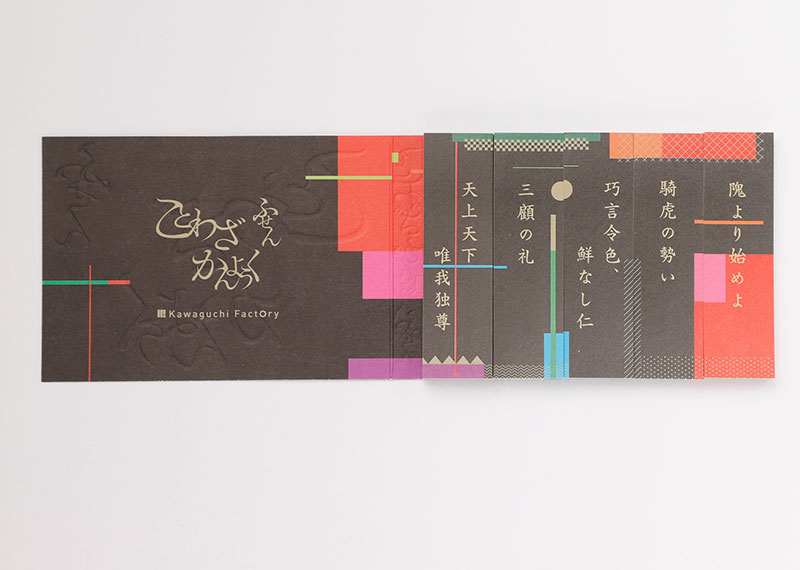 ことわざ
かんようく
ふせん
Kawaguchi Factory
隗より始めよ
騎虎の勢い
巧言令色、
鮮なし仁
三顧の礼
天上天下
唯我独尊